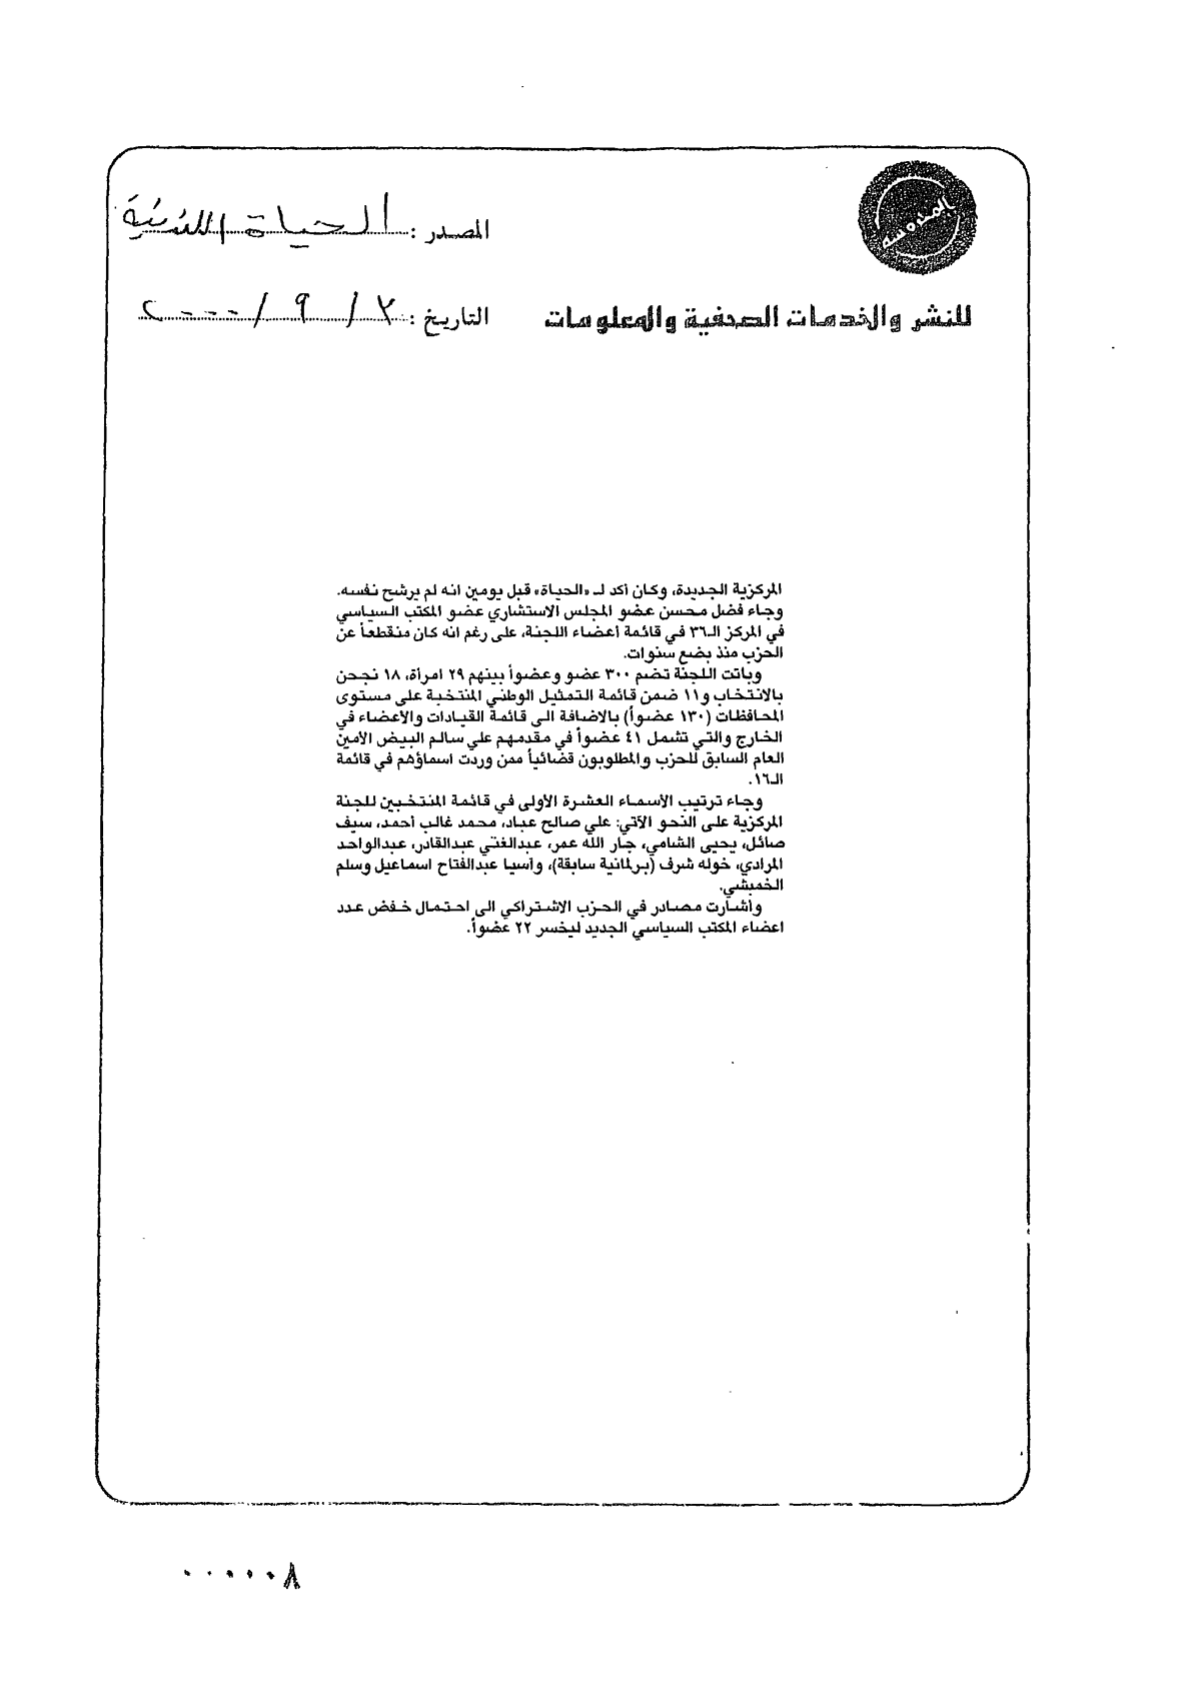 المصدر : الحياة اللندنية
للنشر والخدمات الصحفية والمعلومات
التاريخ : ٧ / ٩ / ٢٠٠٠
المركزية الجديدة، وكان أكد لـ «الحياة» قبل يومين انه لم يرشح نفسه.
وجاء فضل محسن عضو المجلس الاستشاري عضو المكتب السياسي
في المركز الـ٣٦ في قائمة أعضاء اللجنة، على رغم انه كان منقطعاً عن
الحزب منذ بضع سنوات.
وباتت اللجنة تضم ٣٠٠ عضو وعضواً بينهم ٢٩ امرأة، ١٨ نجحن
بالانتخاب و١١ ضمن قائمة التمثيل الوطني المنتخبة على مستوى
المحافظات (١٣٠ عضواً) بالاضافة الى قائمة القيادات والأعضاء في
الخارج والتي تشمل ٤١ عضواً في مقدمهم علي سالم البيض الأمين
العام السابق للحزب والمطلوبون قضائياً ممن وردت اسماؤهم في قائمة
الـ١٦.
وجاء ترتيب الأسماء العشرة الأولى في قائمة المنتخبين للجنة
المركزية على النحو الآتي: علي صالح عباد، محمد غالب أحمد، سيف
صائل، يحيى الشامي، جار الله عمر، عبدالغني عبدالقادر، عبدالواحد
المرادي، خوله شرف (برلمانية سابقة)، وآسيا عبدالفتاح اسماعيل وسلم
الخمبشي.
وأشارت مصادر في الحزب الاشتراكي الى احتمال خفض عدد
اعضاء المكتب السياسي الجديد ليخسر ٢٢ عضواً.
٠٠٠٠٠٨